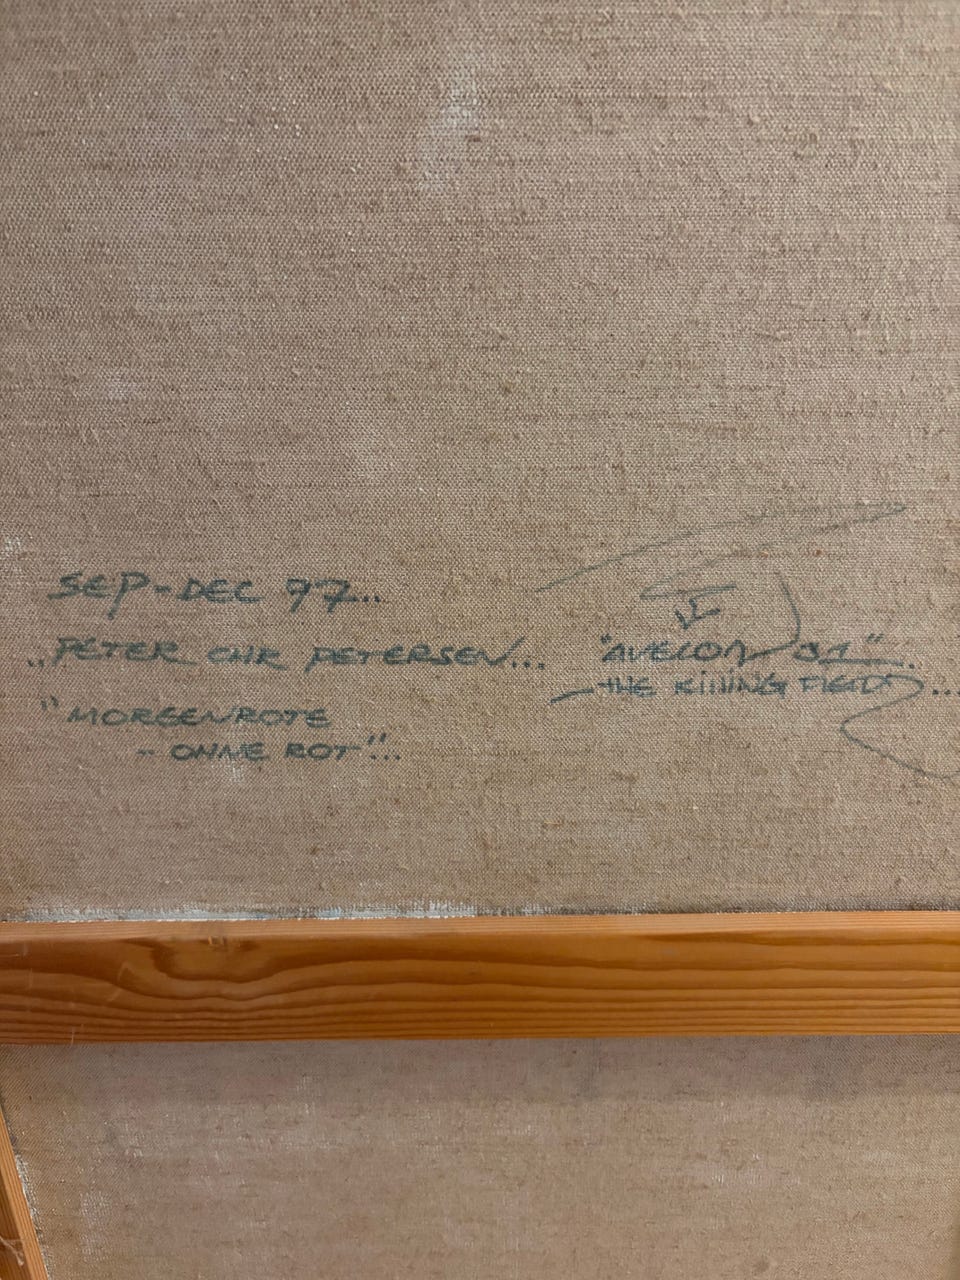 SEP-DEC 97...
„PETER CHR PETERSEN...
"MORGENROTE
- OHNE ROT"...
"AVELON 31"...
THE KILLING FIELDS...